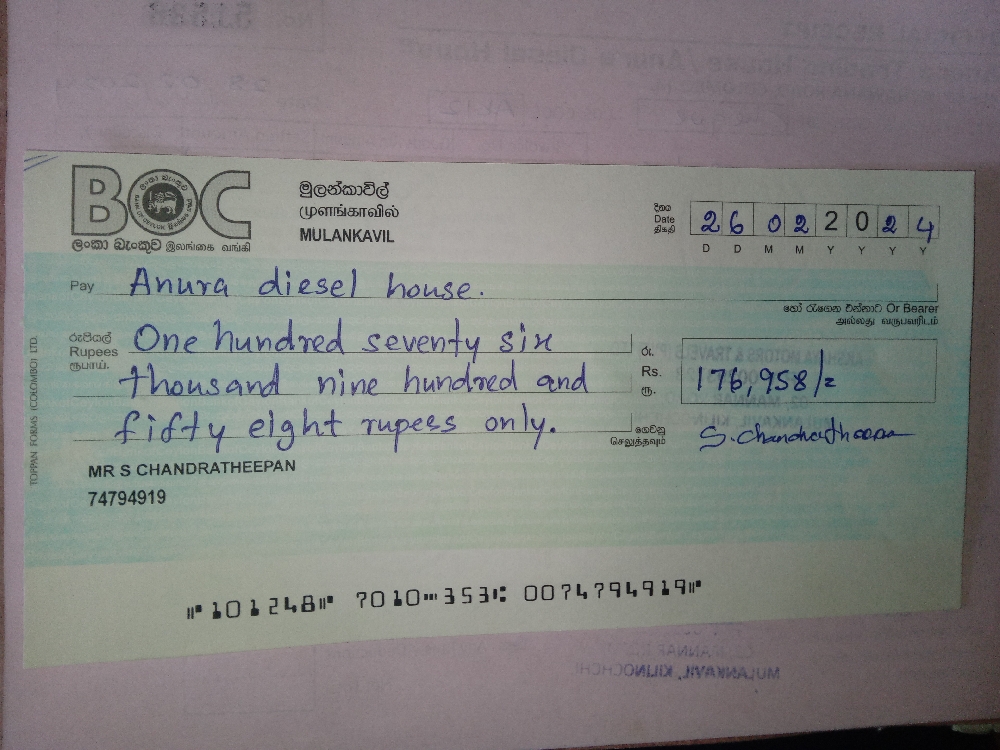 BOC
ලංකා බැංකුව இலங்கை வங்கி
මුලන්කාවිල්
முளங்காவில்
MULANKAVIL
දිනය
Date
திகதி
26 02 2024
D D M M Y Y Y Y
Pay Anura diesel house.
හෝ රැගෙන එන්නාට Or Bearer
அல்லது வருபவரிடம்
රුපියල්
Rupees
ரூபாய்.
One hundred seventy six
thousand nine hundred and
fifty eight rupess only.
රු.
Rs.
ரூ.
176,958/=
ගෙවනු
செலுத்தவும்
S. Chandratheepan
MR S CHANDRATHEEPAN
74794919
TOPPAN FORMS (COLOMBO) LTD.
⑈101248⑈ 7010⑉353⑆ 0074794919⑈
MULANKAVIL, KILINOCHCHI